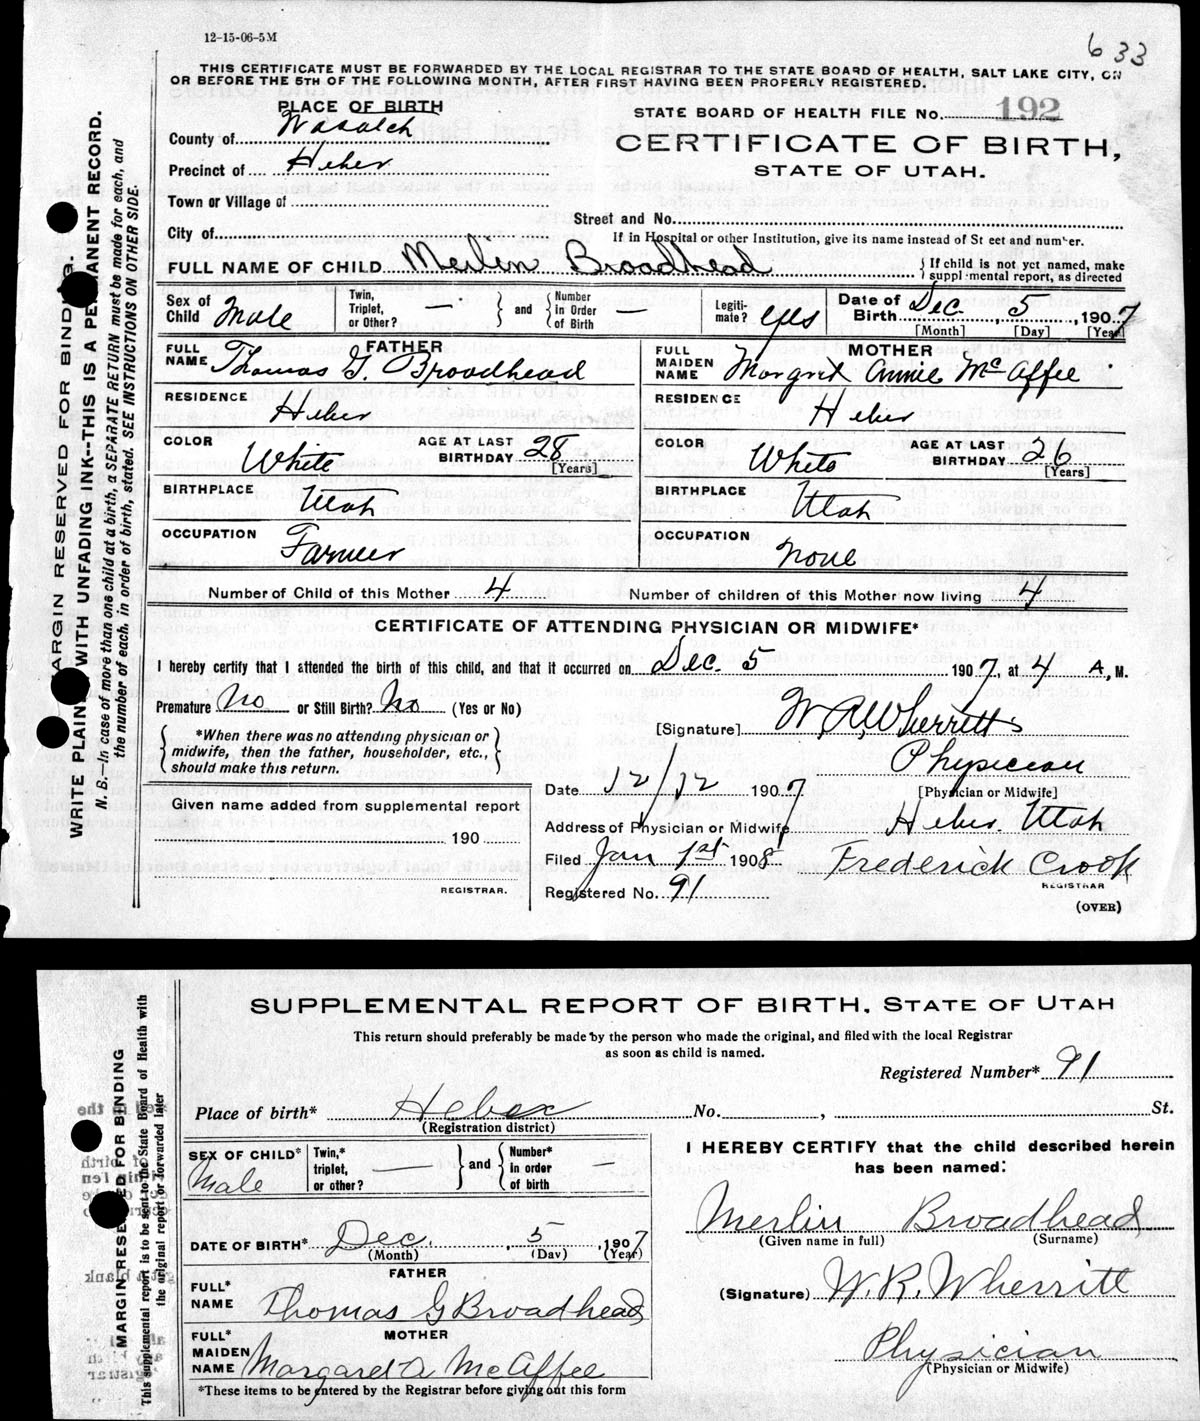 12-15-06-5M
633
THIS CERTIFICATE MUST BE FORWARDED BY THE LOCAL REGISTRAR TO THE STATE BOARD OF HEALTH, SALT LAKE CITY, ON
OR BEFORE THE 5TH OF THE FOLLOWING MONTH, AFTER FIRST HAVING BEEN PROPERLY REGISTERED.
PLACE OF BIRTH
STATE BOARD OF HEALTH FILE No. 192
County of Wasatch
CERTIFICATE OF BIRTH,
Precinct of Heber
STATE OF UTAH.
Town or Village of
Street and No.
City of
If in Hospital or other Institution, give its name instead of St eet and number.
FULL NAME OF CHILD Merlin Broadhead { If child is not yet named, make
suppl mental report, as directed
Sex of Child Male Twin, Triplet, or Other? — } and { Number in Order of Birth — Legiti- mate? yes Date of Birth Dec. 5, 1907
[Month] [Day] [Year]
FATHER
FULL NAME Thomas G. Broadhead
RESIDENCE Heber
COLOR White AGE AT LAST BIRTHDAY 28
[Years]
BIRTHPLACE Utah
OCCUPATION Farmer
MOTHER
FULL MAIDEN NAME Margret Annie McAffee
RESIDENCE Heber
COLOR White AGE AT LAST BIRTHDAY 26
[Years]
BIRTHPLACE Utah
OCCUPATION None
Number of Child of this Mother 4 Number of children of this Mother now living 4
CERTIFICATE OF ATTENDING PHYSICIAN OR MIDWIFE*
I hereby certify that I attended the birth of this child, and that it occurred on Dec. 5 1907, at 4 A, M.
Premature No or Still Birth? No (Yes or No)
[Signature] W R Wherritt
*When there was no attending physician or
midwife, then the father, householder, etc.,
should make this return.
Physician
[Physician or Midwife]
Date 12/12 1907
Address of Physician or Midwife Heber Utah
Given name added from supplemental report
190
REGISTRAR.
Filed Jan 1st 1908 Frederick Crook
REGISTRAR
Registered No. 91
(OVER)
MARGIN RESERVED FOR BINDING.
WRITE PLAINLY WITH UNFADING INK--THIS IS A PERMANENT RECORD.
N. B.—In case of more than one child at a birth, a SEPARATE RETURN must be made for each, and
the number of each, in order of birth, stated. SEE INSTRUCTIONS ON OTHER SIDE.
SUPPLEMENTAL REPORT OF BIRTH, STATE OF UTAH
This return should preferably be made by the person who made the original, and filed with the local Registrar
as soon as child is named.
Registered Number* 91
Place of birth* Heber No. , St.
(Registration district)
SEX OF CHILD* Male Twin,* triplet, or other? — } and { Number* in order of birth —
DATE OF BIRTH* Dec. 5, 1907
(Month) (Day) (Year)
FATHER
FULL* NAME Thomas G Broadhead
MOTHER
FULL* MAIDEN NAME Margaret A McAffee
*These items to be entered by the Registrar before giving out this form
I HEREBY CERTIFY that the child described herein
has been named:
Merlin Broadhead
(Given name in full) (Surname)
(Signature) W. R. Wherritt
Physician
(Physician or Midwife)
MARGIN RESERVED FOR BINDING
This supplemental report is to be sent to the State Board of Health with
the original report or forwarded later